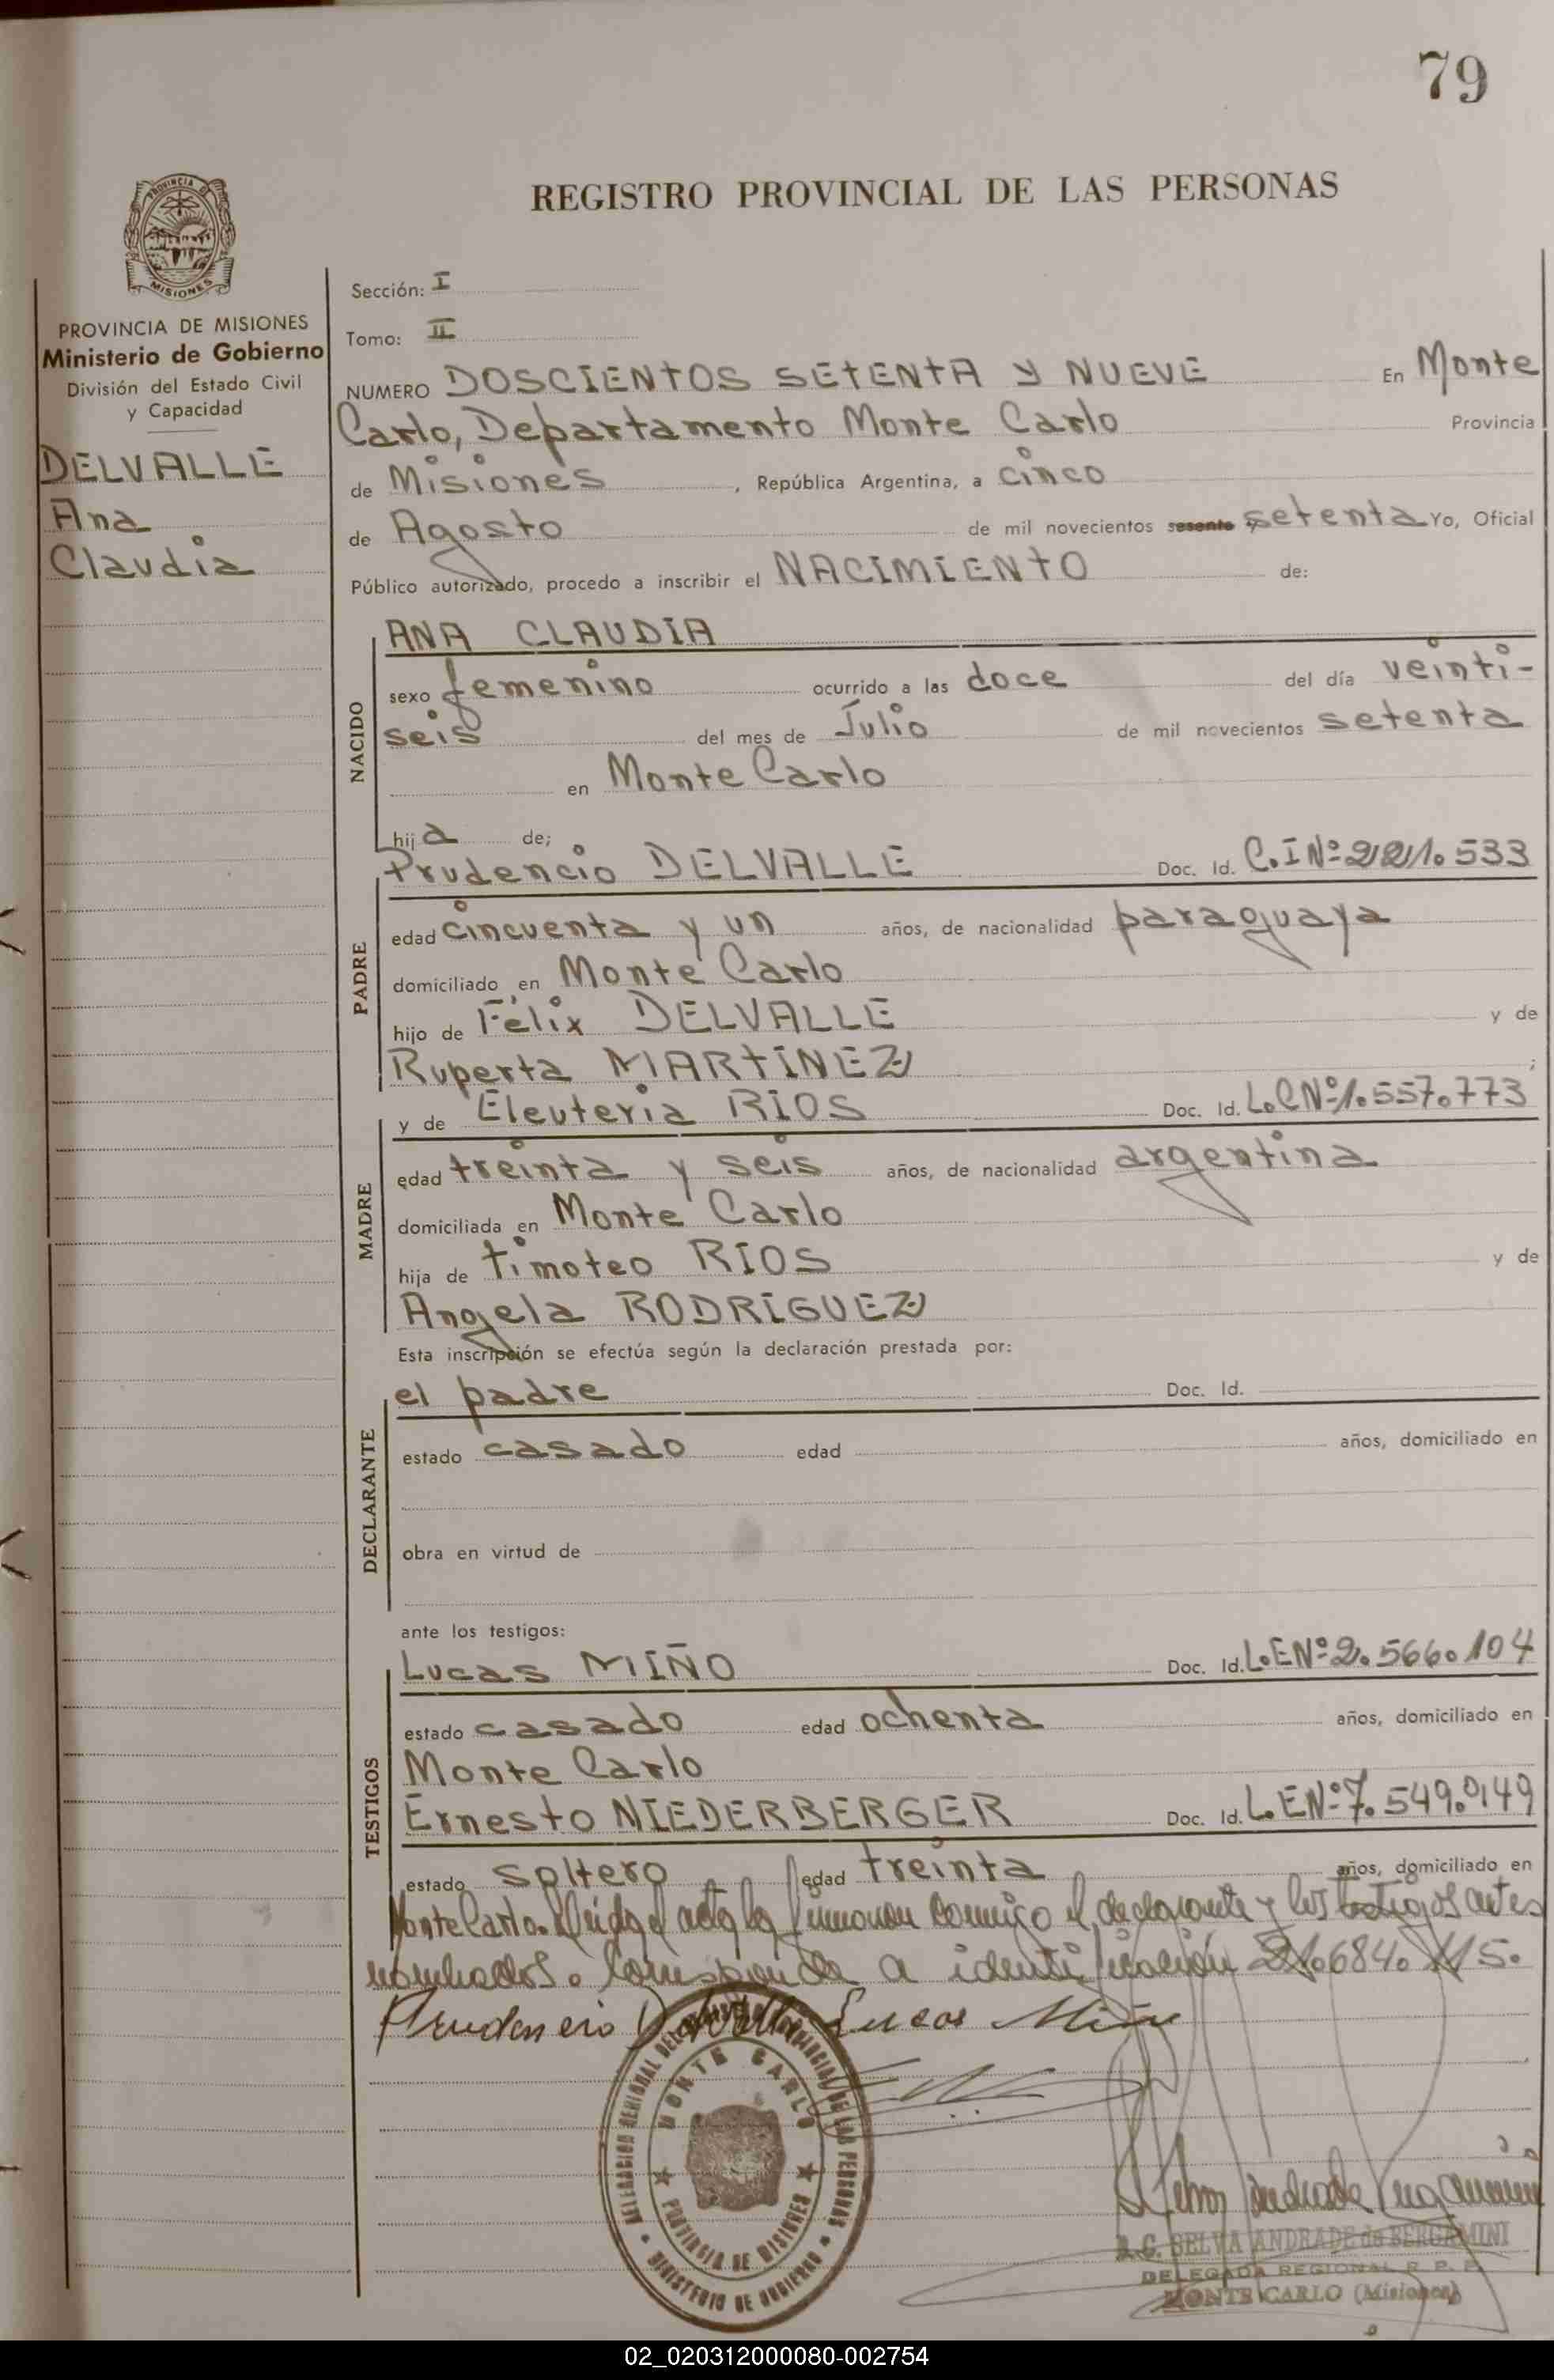 79
REGISTRO PROVINCIAL DE LAS PERSONAS
PROVINCIA DE MISIONES
PROVINCIA DE MISIONES
Ministerio de Gobierno
División del Estado Civil
y Capacidad
DELVALLE
Ana
Claudia
Sección: I
Tomo: II
NUMERO DOSCIENTOS SETENTA Y NUEVE En Monte
Carlo, Departamento Monte Carlo Provincia
de Misiones, República Argentina, a cinco
de Agosto de mil novecientos sesenta setenta Yo, Oficial
Público autorizado, procedo a inscribir el NACIMIENTO de:
NACIDO
ANA CLAUDIA
sexo femenino ocurrido a las doce del día veinti-
seis del mes de Julio de mil novecientos setenta
en Monte Carlo
hija de;
PADRE
Prudencio DELVALLE Doc. Id. C.I Nº 221.533
edad cincuenta y un años, de nacionalidad paraguaya
domiciliado en Monte Carlo
hijo de Félix DELVALLE y de
Ruperta MARTINEZ ;
MADRE
y de Eleuteria RIOS Doc. Id. L.C Nº 1.557.773
edad treinta y seis años, de nacionalidad argentina
domiciliada en Monte Carlo
hija de Timoteo RIOS y de
Angela RODRIGUEZ
Esta inscripción se efectúa según la declaración prestada por:
DECLARANTE
el padre Doc. Id.
estado casado edad años, domiciliado en
obra en virtud de
ante los testigos:
TESTIGOS
Lucas MIÑO Doc. Id. L.E Nº 2.566.104
estado casado edad ochenta años, domiciliado en
Monte Carlo
Ernesto NIEDERBERGER Doc. Id. L.E Nº 7.549.149
estado soltero edad treinta años, domiciliado en
Monte Carlo. Leída el acta la firmaron conmigo el declarante y los testigos antes
nombrados. Corresponde a identificación 21.684.115.
Prudencio Delvalle Lucas Miño
DELEGACION REGIONAL DEL REGISTRO PROVINCIAL DE LAS PERSONAS
MONTE CARLO
PROVINCIA DE MISIONES
MINISTERIO DE GOBIERNO
SELVA ANDRADE de BERGAMINI
DELEGADA REGIONAL R. P. P.
MONTE CARLO (Misiones)
02_020312000080-002754